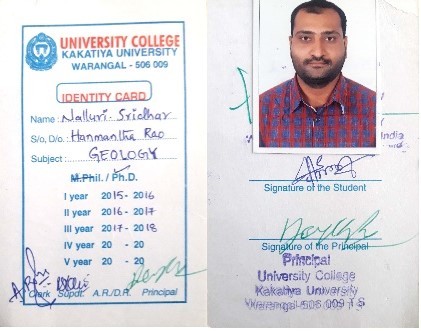 UNIVERSITY COLLEGE
KAKATIYA UNIVERSITY
WARANGAL - 506 009
IDENTITY CARD
Name : Nalluri. Sridhar
S/o, D/o. : Hanmantha Rao
Subject : GEOLOGY
M.Phil. / Ph.D.
I year 2015-2016
II year 2016-2017
III year 2017-2018
IV year 20 - 20
V year 20 - 20
Clerk Supdt. A.R./D.R. Principal
India
Signature of the Student
Signature of the Principal
Principal
University College
Kakatiya University
Warangal-506 009 T S